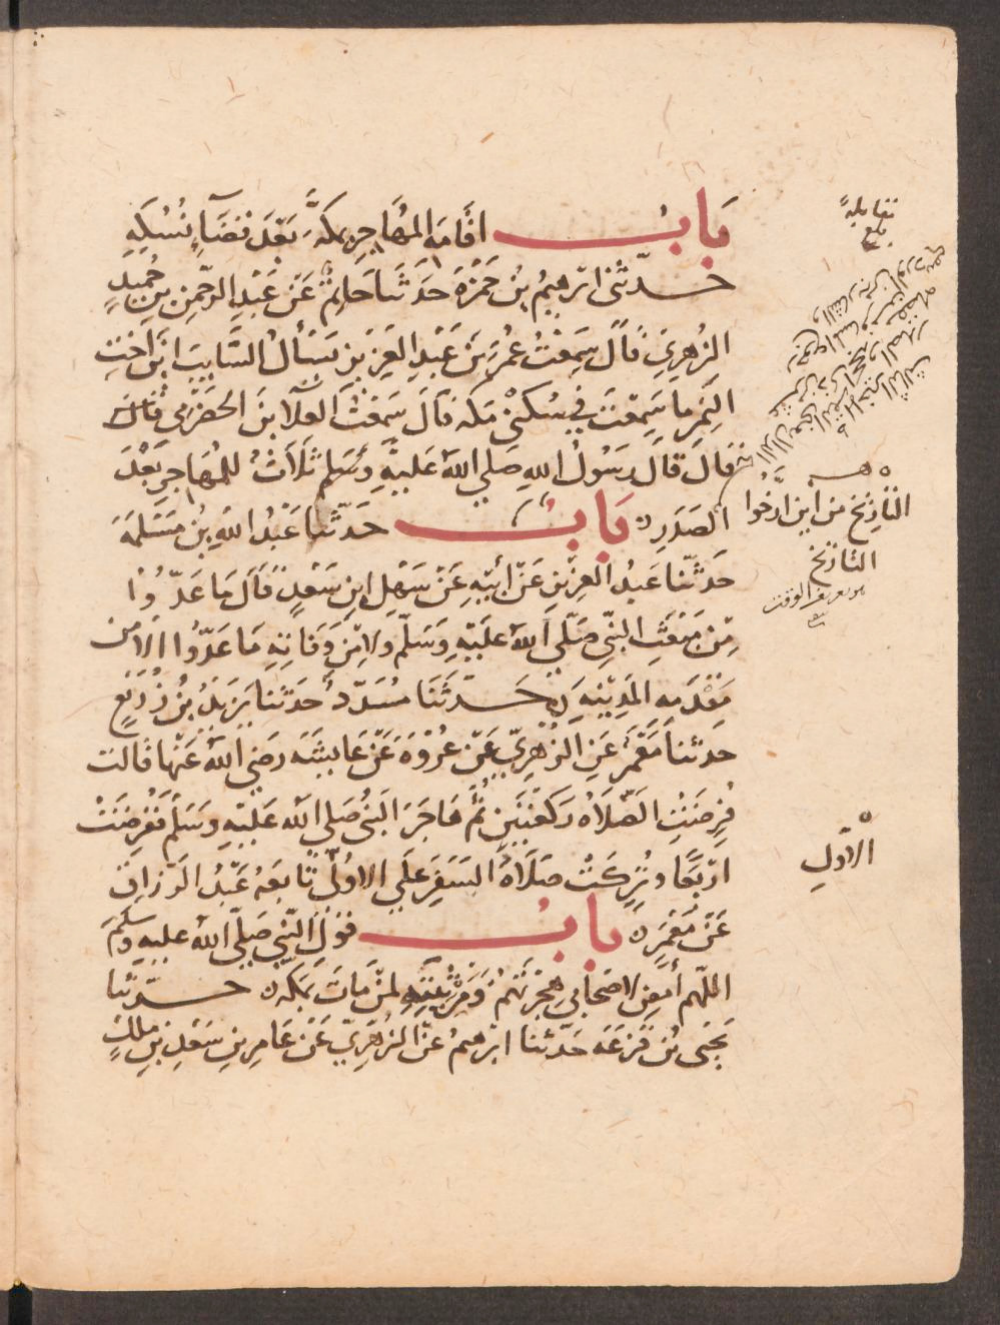 باب اقامة المهاجر بمكة بعد قضاء نسكه
حدثنى ابرهيم بن حمزة حدثنا حاتم عن عبد الرحمن بن حميد
الزهري قال سمعت عمر بن عبد العزيز يسأل السايب ابن اخت
النمر ما سمعت في سكنى مكه قال سمعت العلا بن الحضرمى
قال قال رسول الله صلي الله عليه وسلم ثلاث للمهاجر بعد
الصدر ه باب حدثنا عبد الله بن مسلمة
حدثنا عبد العزيز عن ابيه عن سهل ابن سعد قال ما عدوا
من مبعث النبي صلي الله عليه وسلم ولا من وفاته ما عدوا الا من
مقدمه المدينه ه حدثنا مسدد حدثنا يزيد بن زريع
حدثنا معمر عن الزهري عن عروة عن عايشه رضي الله عنها قالت
فرضت الصلاة ركعتين ثم هاجر النبي صلي الله عليه وسلم ففرضت
اربعا وتركت صلاة السفر علي الاولى تابعه عبد الرزاق
عن معمر ه باب قول النبي صلي الله عليه وسلم
اللهم أمض لاصحابي هجرتهم ومرثيته لمن مات بمكه ه حدثنا
يحيى بن قزعه حدثنا ابرهيم عن الزهري عن عامر بن سعد بن ملك
بلغ
مقابلة
التاريخ من اين ارخوا
التاريخ
الاول